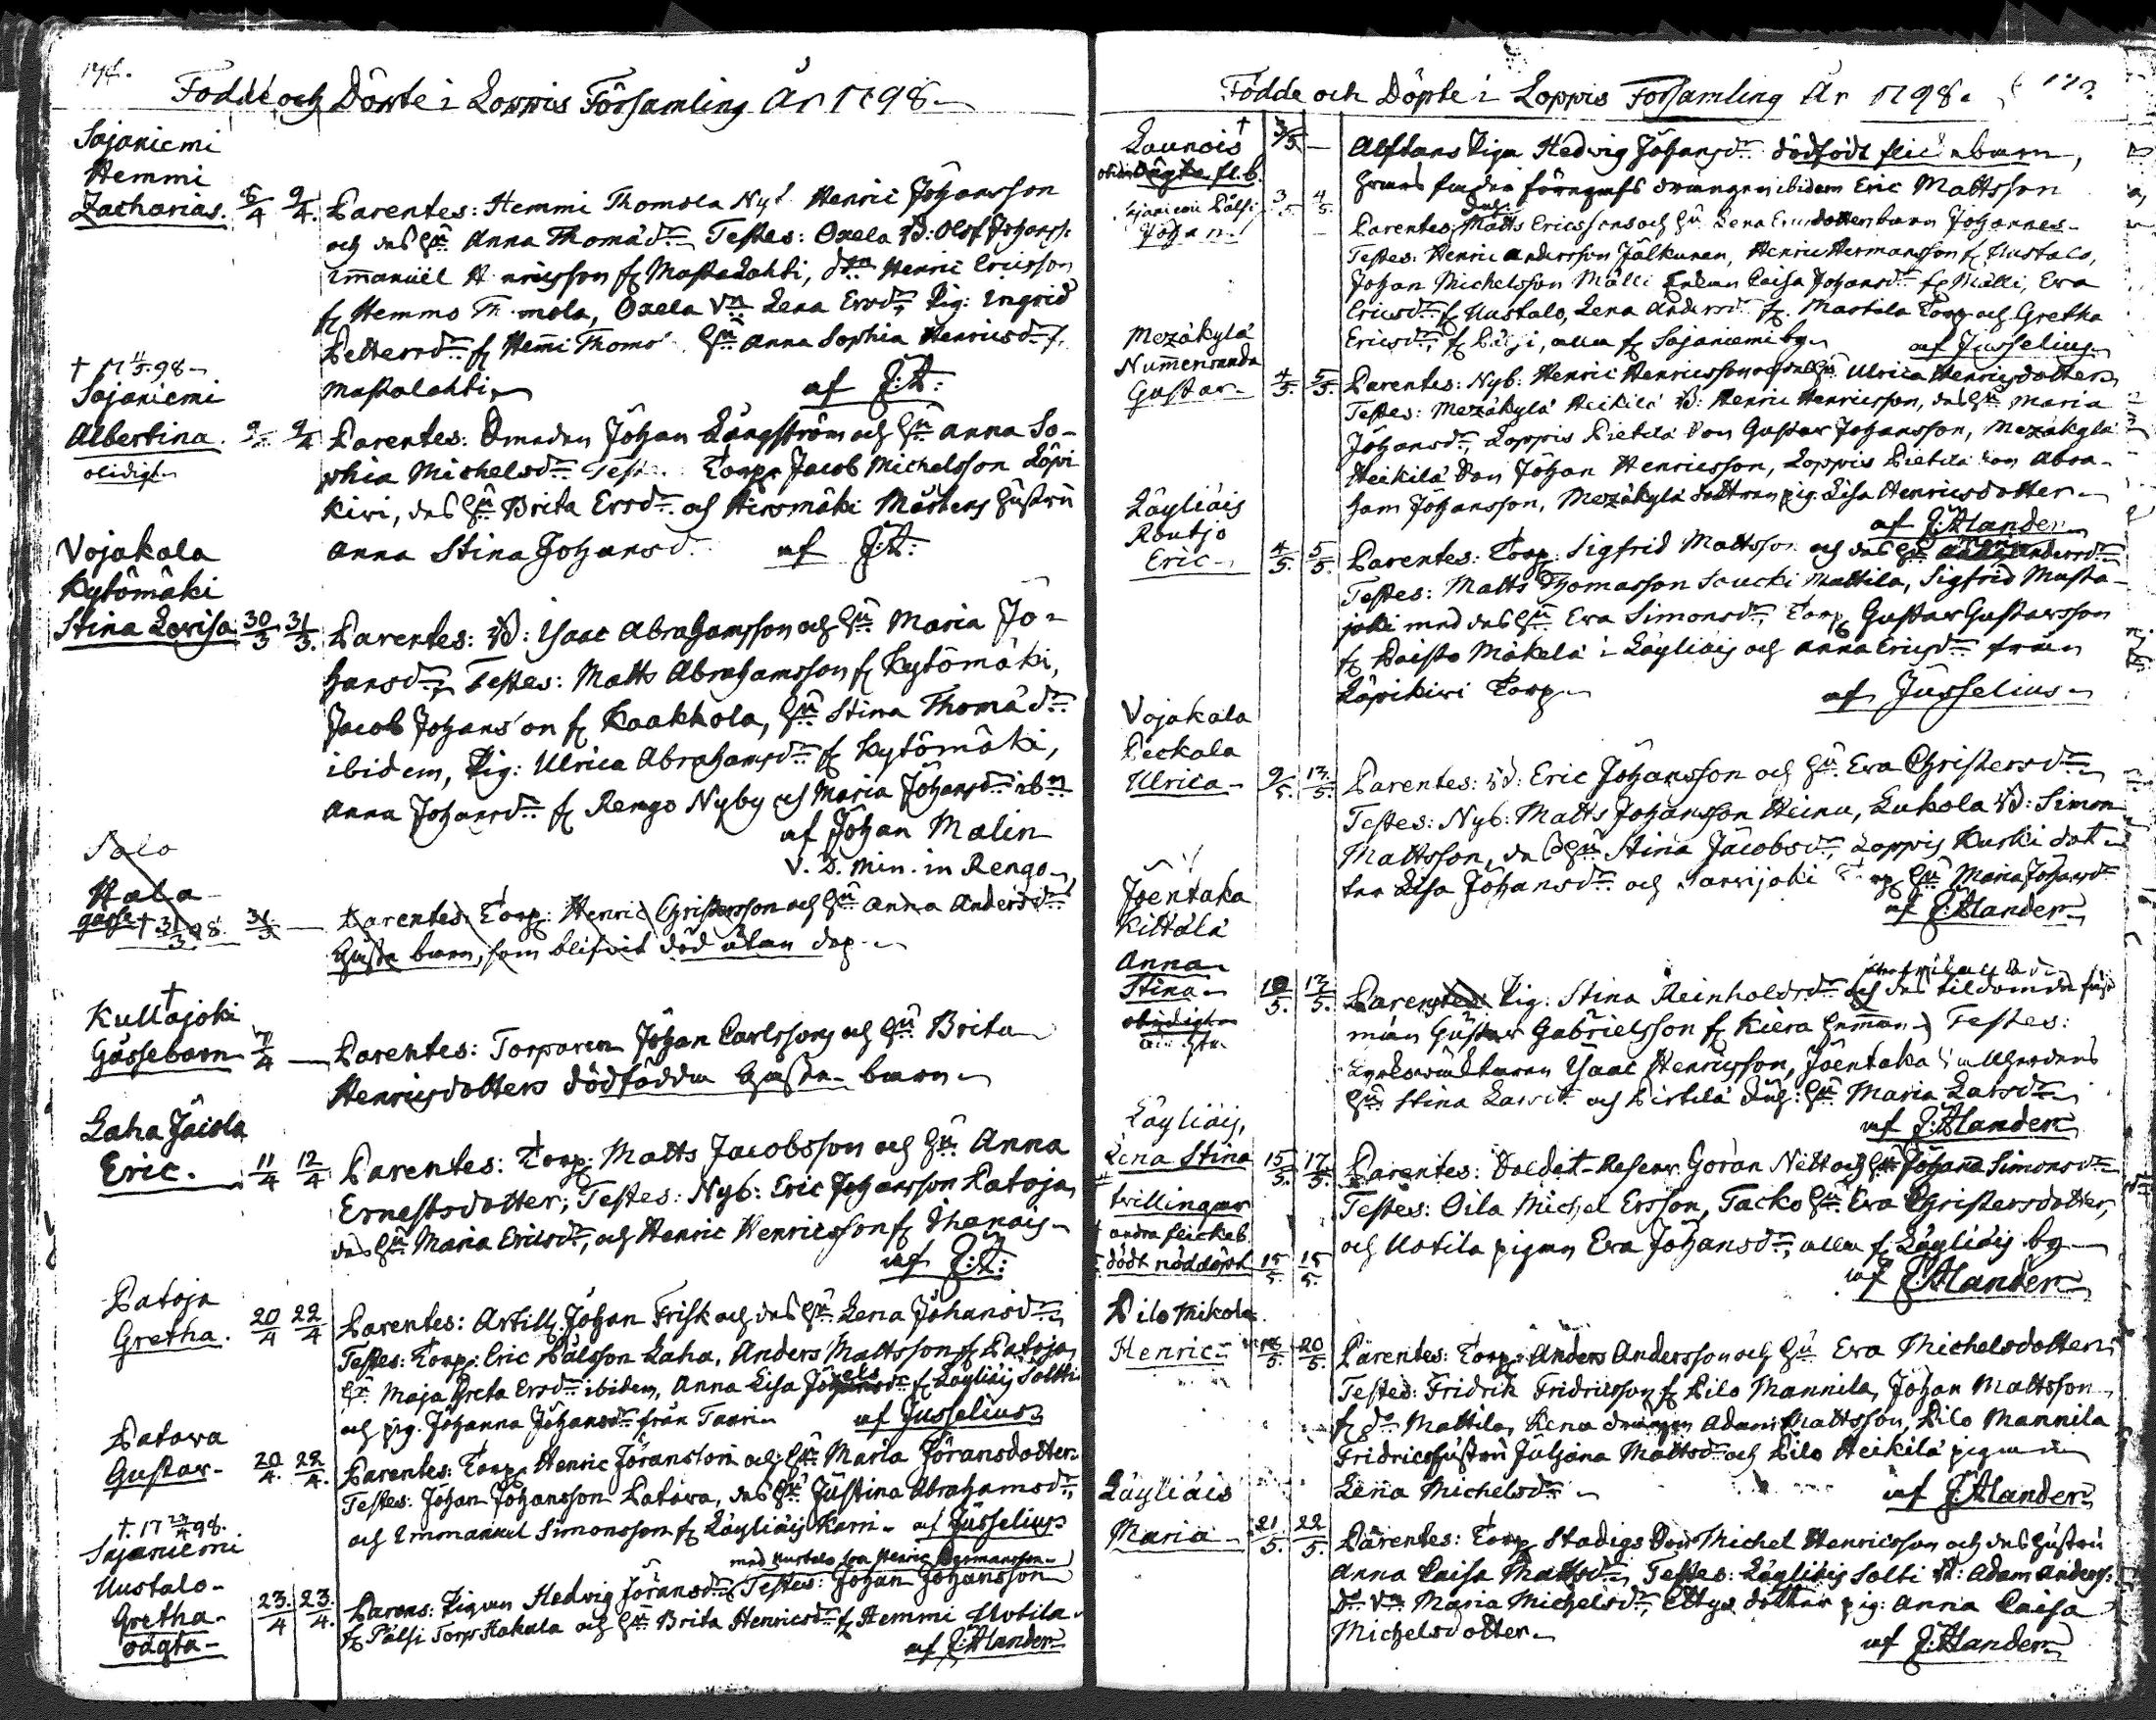 Födde och Döpte i Loppis Församling År 1798
Sajaniemi
Hemmi
Zacharias. 8/4 9/4. Parentes: Hemmi Thomola Nyb Henric Johansson
och des Hu Anna Thomæd:r Testes: Oxela Bd: Olof Johanss:
Emanuel H nricsson f. Mastalahti, d:n Henric Ericsson
f. Hemmo Th mola, Oxela V:n Lena Ersd:r Pig: Ingrid
Pettersd:r f. Hemi Thomo Hu Anna Sophia Henricsd:r f.
Mastalahti af J:A:
† 17 11/5 98
Sajaniemi
Albertina. 9/4 Parentes: Smeden Johan Långström och Hu Anna So-
olidigt
phia Michelsd:r Test Torp. Jacob Michelsson Löpi
kivi, des Hu Brita Ersd:r och Hirsmäki Mårtens Hustru
Anna Stina Johansd. af J:A:
Vojakala
Kytömäki
Stina Lovisa 30/3 31/3. Parentes: Bd: Isaac Abrahamsson och Hu Maria Jo-
hansd:r, Testes: Matts Abrahamsson f. Kytömäki,
Jacob Johansson f. Kaakkola, Hu Stina Thomæd:r
ibidem, Pig: Ulrica Abrahamsd:r f. Kytömäki,
Anna Johansd:r f. Rengo Nyby och Maria Johansd:r ib:m
af Johan Malin
V. D. Min. in Rengo
Salo
Hala
gosse † 31/3 98. 31/3 — Parentes: Torp: Henric Christersson och Hu Anna Andersd:rs
Gosse barn, som blifvit död utan dop.
†
Kultajoki
Gossebarn 7/4 — Parentes: Torparen Johan Carlssons och Hu Brita
Henricsdotters dödfödda Gosse-barn
Laha Jäiola
Eric. 11/4 12/4 Parentes: Torp: Matts Jacobsson och Hu Anna
Ernestsdotter; Testes: Nyb: Eric Johansson Latoja,
des Hu Maria Ericsd:r, och Henric Henricsson f. Thanais
af J:A:
Latoja
Gretha. 20/4 22/4 Parentes: Artill. Johan Frisk och des Hu Lena Johansd:r
Testes: Torp: Eric Pålsson Laha, Anders Mattsson f. Latoja,
Hu Maja Greta Ersd:r ibidem, Anna Lisa f. Läyliäis Soltti
och pig. Johanna Johansd:r från Taari af Jusselius
Latova
Gustav 20/4. 22/4. Parentes: Torp. Henric Jöransson och Hu Maria Jöransdotter
Testes: Johan Johansson Latova, des Hu Justina Abrahamsd:r,
och Emmanuel Simonsson f. Läyliäis Karri af Jusselius
†. 17 29/4 98.
Sajaniemi
Uustalo
Gretha 23./4 23./4. Parens: Pigan Hedvig Jöransd:r Testes: Johan Johansson
med Uustalo son Henric Hermansson
oägta f. Pälsi Torp Hakala och Hu Brita Henricsd:r f. Hemmi Uotila
af J:Alander
Födde och Döpte i Loppis Församling År 1798.
Launois † 3/5 — Alftans Piga Hedvig Johansd:r dödfödt flickebarn,
oägta fl.b. drängen ibidem Eric Mattsson
Sajaniemi Pälsi 3/5 4/5. Parentes: Matts Ericssons och Hu Lena dotters barn Johannes
Johan
Testes: Henric Andersson Jälkunen, Henric Hermansson f. Uustalo,
Johan Michelsson Mälli Enkan Caisa Johansd:r f. Mälli, Eva
Ericsd:r f. Uustalo, Lena Andersd f. Martila Torp och Gretha
Ericsd:r, f. Pälsi, alla f. Sajaniemi by af Jusselius
Mezäkylä
Nummenranda
Gustav 4/5. 5/5. Parentes: Nyb: Henric Henricsson och des Hu Ulrica Henricsdotter
Testes: Mezäkylä Heikilä Bd: Henric Henricsson, des Hu Maria
Johansd:r, Loppis Pietilä Son Gustav Johansson, Mezäkylä
Heikilä Son Johan Henricsson, Loppis Pietilä son Abra-
ham Johansson, Mezäkylä dottren pig. Lisa Henricsdotter
af J:Alander
Läyliäis
Routjo
Eric 4/5. 5/5. Parentes: Torp: Sigfrid Mattsson och des Hu Andersd:r
Testes: Matts Thomasson Saucki Mattila, Sigfrid Musta-
joki med des Hu Eva Simonsd:r, Torp. Gustav Gustavsson
f. Paisto Mäkelä i Läyliäis och Anna Ericsd:r från
Löpikivi Torp af Jusselius
Vojakala
Peckala
Ulrica 9/5. 13/5. Parentes: Bd: Eric Johansson och Hu Eva Christersd:r
Testes: Nyb: Matts Johansson Heinu, Lukola Bd: Simon
Mattsson, des Hu Stina Jacobsd:r, Loppis Kuski dot-
ter Lisa Johansd:r och Sarvijoki Torp Hu Maria Johansd:r
af J:Alander
Joentaka
Kittälä
Anna
Stina 10/5. 13/5. Parentes: Pig: Stina Reinholdsd:r och des tildömda fäst
man Gustav Gabrielsson f. Kiera Testes:
Isaac Henricsson, Joentaka
Hu Stina Larsd:r och Pirtilä Hu Maria Larsd:r
af J:Alander
Läyliäis,
Lena Stina 15/5. 17/5. Parentes: Soldat-Reserv Göran Nätt och Hu Johana Simonsd:r
tvillingar Testes: Oila Michel Ersson, Tacko Hu Eva Christersdotter,
andra flickeb. och Uotila pigan Eva Johansd:r, alla f. Läyliäis by
dödt nöddöpt 15/5. 15/5. af J:Alander
Pilo Mikola
Henric 18/5. 20/5 Parentes: Torp: Anders Andersson och Hu Eva Michelsdotter,
Testes: Fridrik Fridricsson f. Pilo Mannila, Johan Mattsson
f. d:o Mattila, Rena drängen Adam Mattsson, Pilo Mannila
Fridrics hustru Juliana Mattsd:r och Pilo Heikilä pigan
Lena Michelsd:r af J:Alander
Läyliäis
Maria 21/5. 22/5. Parentes: Torp Stadigs Son Michel Henricsson och des Hustru
Anna Caisa Mattsd:r, Testes: Läyliäis Solti Bd: Adam Anders:
d:o V:n Maria Michelsd:r, Ettys dotter pig: Anna Caisa
Michelsdotter
af J:Alander